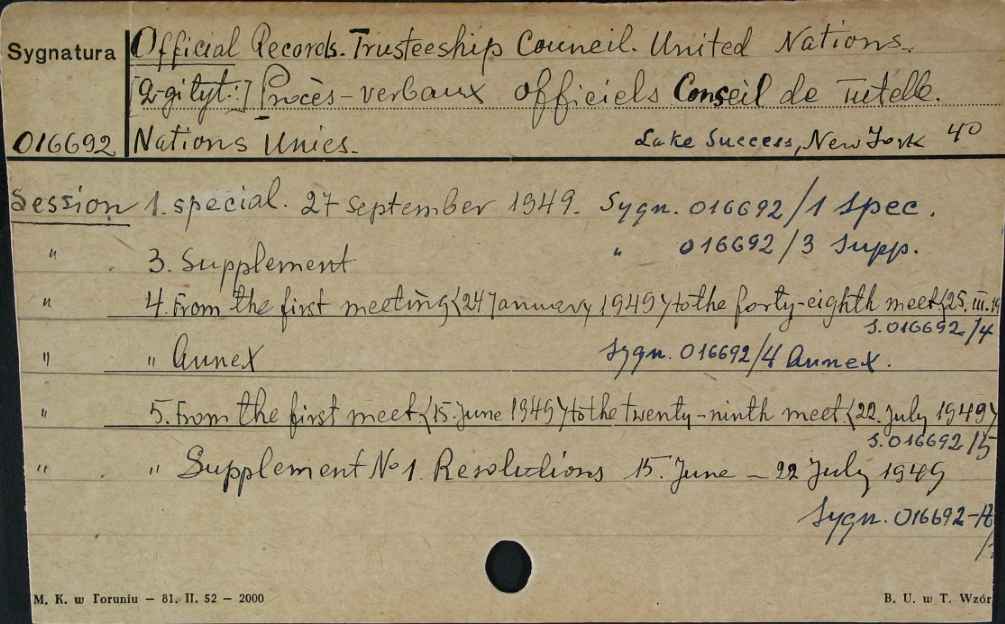 Sygnatura Official Records. Trusteeship Council. United Nations.
[2-gi tyt.:] Procès-verbaux officiels Conseil de Tutelle.
016692 Nations Unies. Lake Success, New York 4°
Session 1. special. 27 September 1949. Sygn. 016692/1 spec.
" 3. Supplement " 016692/3 Supp.
" 4. From the first meeting (24 January 1949) to the forty-eighth meet (25. III. 19
S. 016692/4
" " Annex Sygn. 016692/4 Annex.
" 5. From the first meet (15. June 1949) to the twenty-ninth meet (22. July 1949)
S. 016692/5
" " Supplement No 1. Resolutions 15. June – 22 July 1949
Sygn. 016692
M. K. w Toruniu – 81. II. 52 – 2000 B. U. w T. Wzór